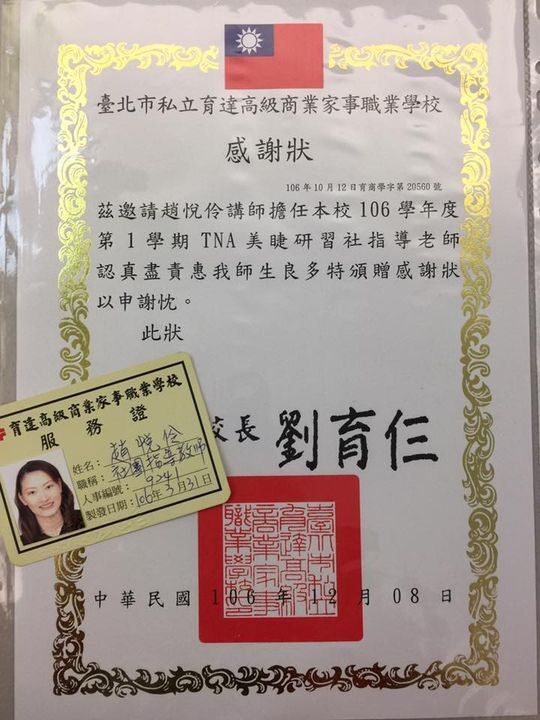 臺北市私立育達高級商業家事職業學校
感謝狀
106年10月12日育商學字第20560號
茲邀請趙悅伶講師擔任本校106學年度
第1學期TNA美睫研習社指導老師
認真盡責惠我師生良多特頒贈感謝狀
以申謝忱。
此狀
校長 劉育仁
育達高級商業家事職業學校
服務證
姓名：趙悅伶
職稱：社團指導教師
人事編號：9241
製發日期：106年3月31日
中華民國106年12月08日